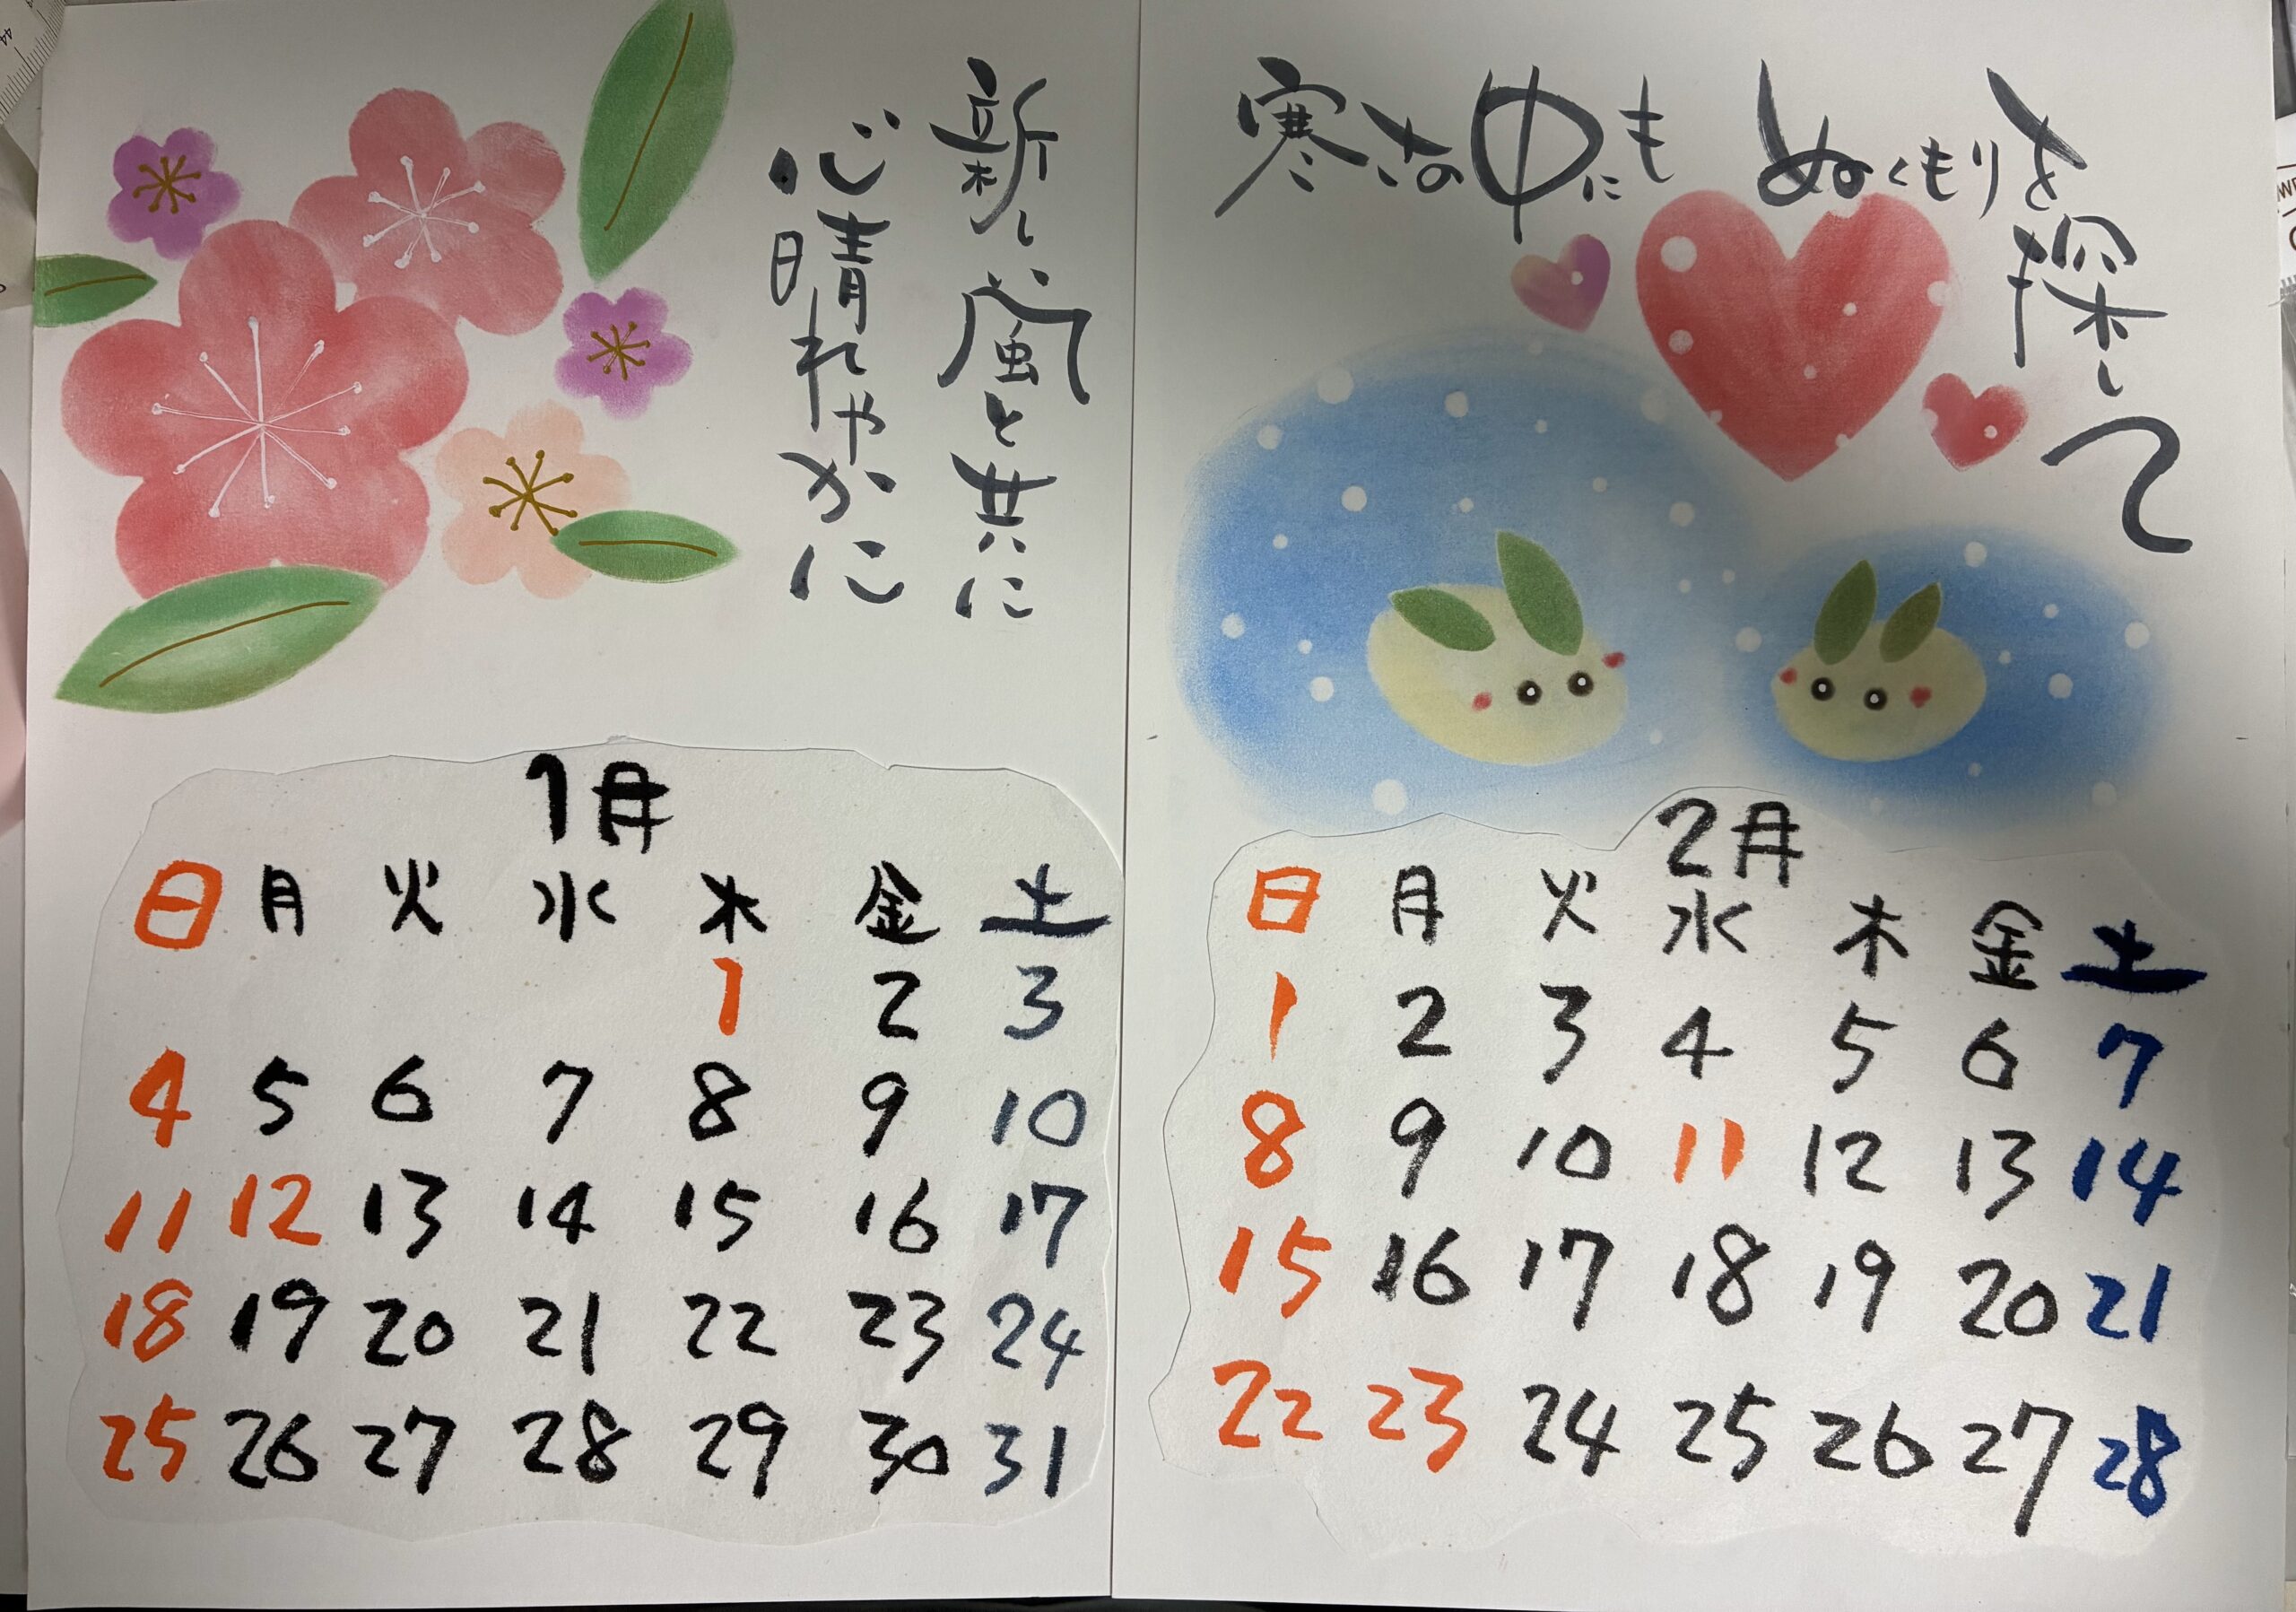 新しい風と共に
心晴れやかに
1月
日 月 火 水 木 金 土
1 2 3
4 5 6 7 8 9 10
11 12 13 14 15 16 17
18 19 20 21 22 23 24
25 26 27 28 29 30 31
寒さの中にも
ぬくもりを
探して
2月
日 月 火 水 木 金 土
1 2 3 4 5 6 7
8 9 10 11 12 13 14
15 16 17 18 19 20 21
22 23 24 25 26 27 28
44